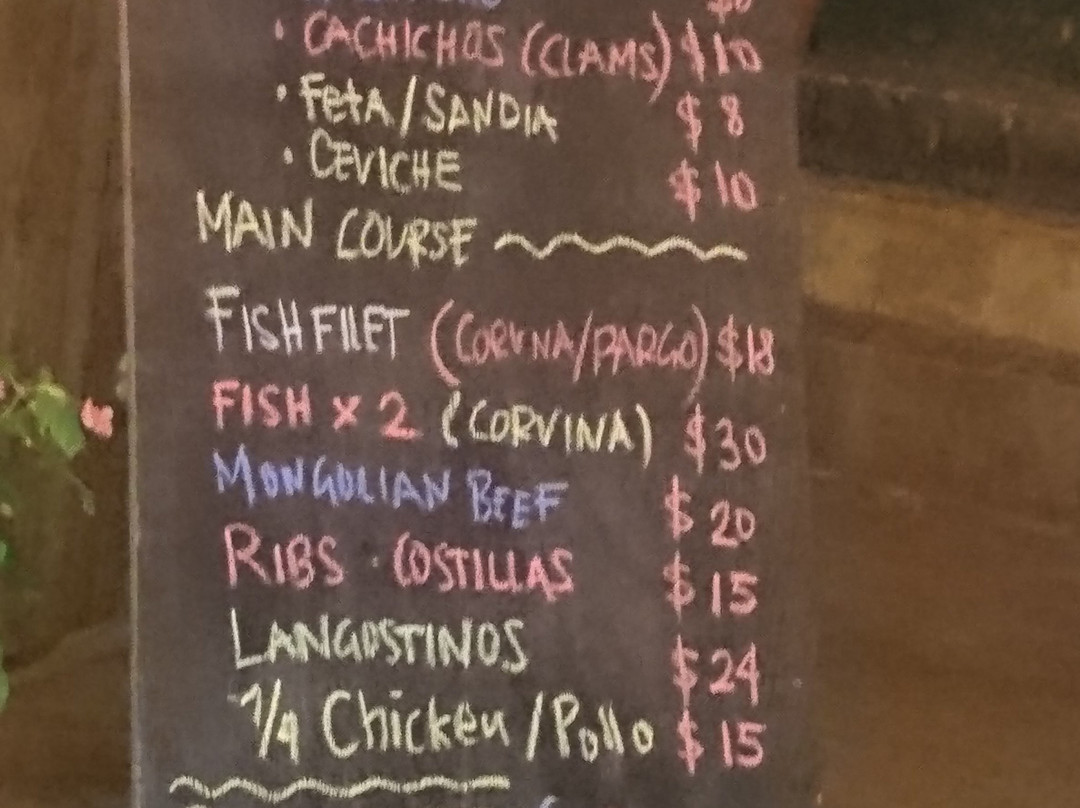 · CACHICHOS (CLAMS) $10
· FetA/SANDIA $8
· CEVICHE $10
MAIN COURSE
FISH FILET (CORVINA/PARGO) $18
FISH x 2 (CORVINA) $30
MONGOLIAN BEEF $20
RIBS · COSTILLAS $15
LANGOSTINOS $24
1/4 Chicken/Pollo $15